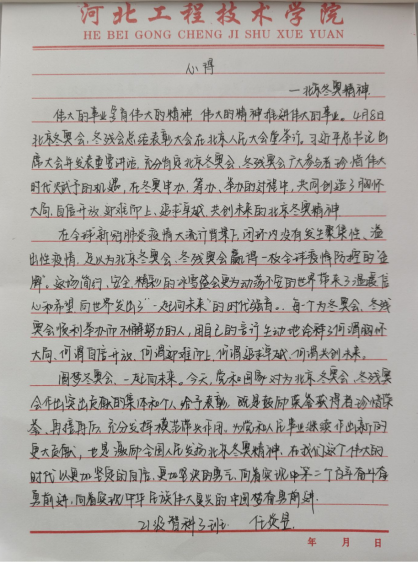 河北工程技术学院
HE BEI GONG CHENG JI SHU XUE YUAN
心得
—北京冬奥精神
伟大的事业孕育伟大的精神,伟大的精神推动伟大的事业。4月8日
北京冬奥会、冬残奥会总结表彰大会在北京人民大会堂举行。习近平总书记出
席大会并发表重要讲话,充分肯定北京冬奥会、冬残奥会广大参与者珍惜伟大
时代赋予的机遇,在冬奥申办、筹办、举办的过程中,共同创造了胸怀
大局、自信开放、迎难而上、追求卓越、共创未来的北京冬奥精神
在全球新冠肺炎疫情大流行背景下,闭环内没有发生聚集性、溢
出性疫情,
北京冬奥会、冬残奥会赢得
全球疫情防控的“金
牌”。这场简约、安全、精彩的冰雪盛会更为动荡不安的世界带来了温暖信
心和希望,向世界发出了“一起向未来”的时代强音。每个为冬奥会、冬残
奥会顺利举办而不懈努力的人,用自己的言行生动地诠释了何谓胸怀
大局、何谓自信开放、何谓迎难而上、何谓追求卓越、何谓共创未来。
圆梦冬奥会,一起向未来。今天,党和国家对为北京冬奥会、冬残奥
会作出突出贡献的集体和个人给予表彰,既是鼓励荣誉获得者珍惜荣
誉、再接再厉,充分发挥模范带头作用,为党和人民事业继续作出新的
更大贡献,也是激励全国人民发扬北京冬奥精神,在我们这个伟大的
时代以更加坚定的自信、更加坚决的勇气,向着实现中第二个百年奋斗
勇前进,向着实现中华民族伟大复兴的中国梦奋勇前进.
21级智科3班
年 月 日